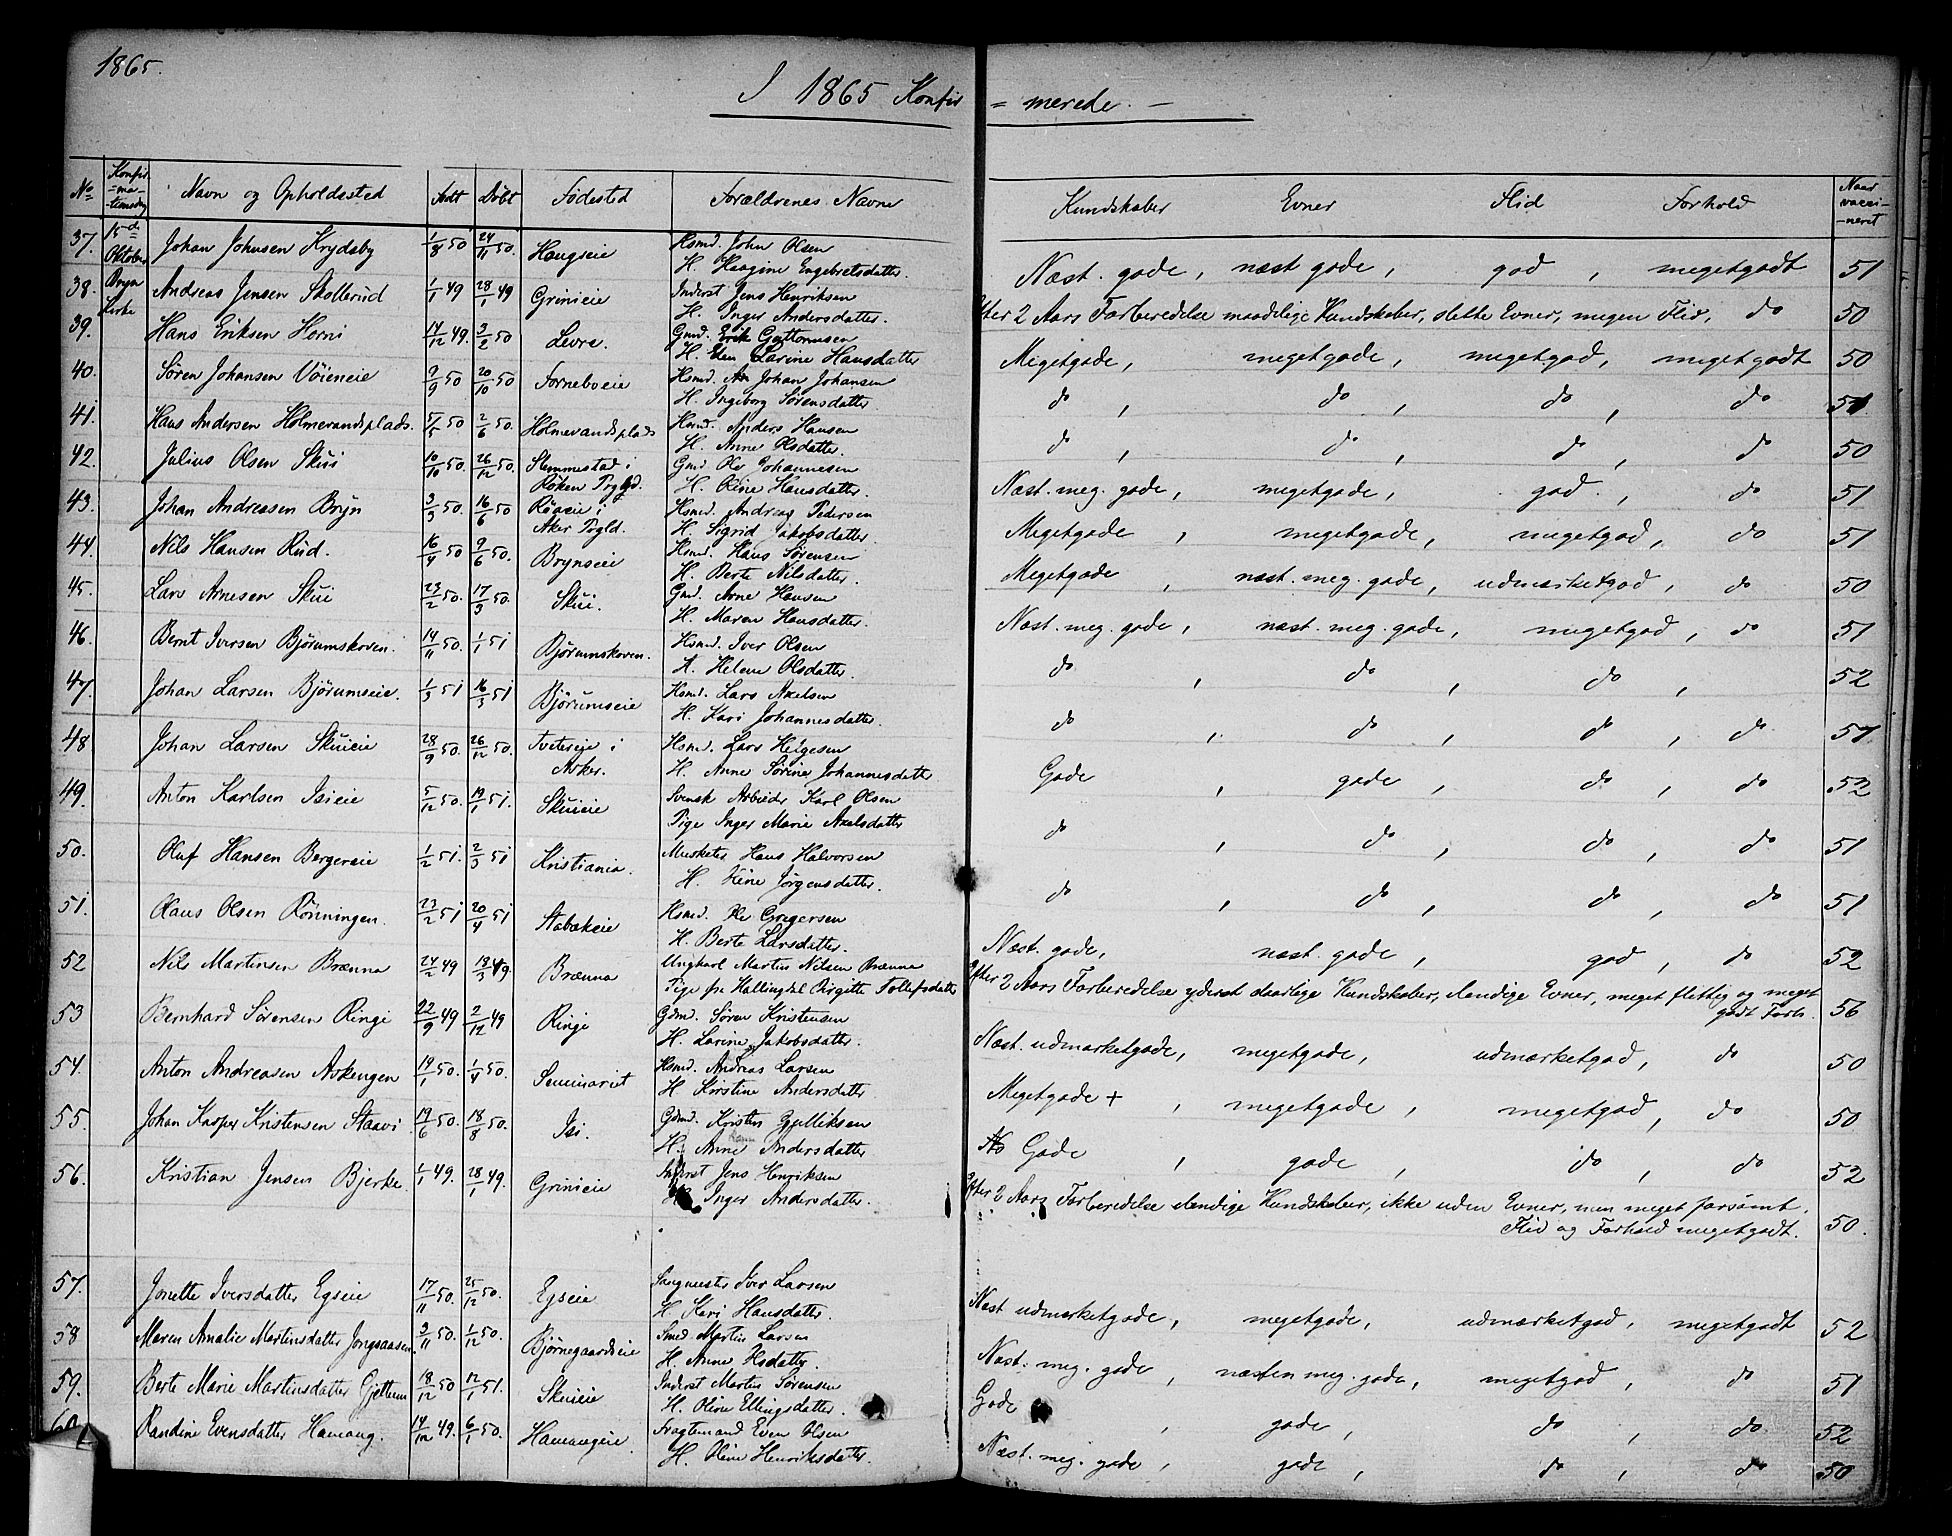 1865.
I 1865 Konfir = merede. –
No Konfir=ma=tionsdag Navn og Opholdssted Født Døbt Fødested Forældrenes Navne Kundskaber Evner Flid Forhold Naar vacci-neret
37. 15de Oktober Johan Johnsen Krydsby 1/8 50 24/11 50. Haugseie Hsmd. John Olsen
H. Haagine Engebretsdatter. Næst. gode, næst gode, god, megetgodt 51
38. Bryn Kirke Andreas Jensen Skollerud 1/1 49 28/1 49 Grinieie Inderst Jens Henriksen
H. Inger Andersdatter. Efter 2 Aars Forberedelse maadelige Kundskaber, slette Evner, megen Flid, do 50
39. Hans Eriksen Horni 14/12 49. 3/2 50 Levre. Gmd. Erik Guttormsen
H. Elen Larine Hansdatter Megetgode, megetgode, megetgod, megetgodt 50
40. Søren Johansen Vøieneie 9/9 50 20/10 50 Forneboeie Hsmd. Johan Johansen
H. Ingeborg Sørensdatter. do, do, do, do 51.
41. Hans Andersen Holmevandsplads. 5/5 50 2/6 50. Holmevandsplads Hsmd. Anders Hansen
H. Anne Olsdatter. do, do, do, do 50
42. Julius Olsen Skui 10/10 50. 26/12 50. Slemmestad i Røken Prgld. Gmd Ole Johannesen
H. Oline Hansdatter. Næst. meg. gode, megetgode, god., do 51
43. Johan Andreasen Bryn 3/3 50. 16/6 50 Røaeie i Aker Prgld. Hsmd. Andreas Pedersen
H. Sigrid Jakobsdatter. Megetgode, megetgode, megetgod, do 51
44. Nils Hansen Rud. 16/4 50 9/6 50. Brynseie Hsmd. Hans Sørensen
H. Berte Nilsdatter. Megetgode, næst. meg. gode, udmærketgod, do 50
45. Lars Arnesen Skui 23/2 50. 17/3 50. Skui. Gmd. Arne Hansen
H. Maren Hansdatter. Næst. meg. gode, næst. meg. gode, megetgod, do 51
46. Bernt Iversen Bjørumskoven. 14/11 50. 1/1 51 Bjørumskoven. Hsmd. Iver Olsen
H. Helene Olsdatter. do, do, do, 52
47. Johan Larsen Bjørumseie. 1/3 51 16/3 51 Bjørumseie Hsmd. Lars Axelsen
H. Kari Johannesdatter. do, do, do, do. 51
48 Johan Larsen Skuieie 28/9 50. 26/12 50. Tvetereje i Asker. Hsmd. Lars Helgesen
H. Anne Sørine Johannesdatter Gode, gode, do, do 52
49. Anton Karlsen Isieie 5/12 50. 19/1 51. Skuieie Svensk Arbeider Karl Olsen
Pige Inger Marie Axelsdatter do, do, do, do 51
50. Oluf Hansen Bergerseie 1/2 51. 2/3 51 Kristiania. Musketer Hans Halvorsen
H. Jørgensdatter. do, do, do, do 51
51. Claus Olsen Rønningen. 23/2 51 20/4 51 Stabækeie Hsmd. Ole Gregersen
H. Berte Larsdatter. Næst. gode, næst. gode, god, do 52
52 Nils Martinsen Brænna 24/2 49 13/3 49. Brænna Ungkarl Martin Nilsen Brænna
Pige fra Hallingdal Birgitte Tollefsdatter Efter 2 Aars Forberedelse yderst daarlige Kundskaber, elendige Evner, meget flittig og meget godt Forh. 56
53 Bernhard Sørensen Ringi 22/9 49 2/12 49 Ringi Gdmd. Søren Kristensen
H. Larine Jakobsdatter. Næst. udmærketgode, megetgode, udmærketgod, do 50
54. Anton Andreasen Askengen 19/1 50. 1/4 50. Seminariet Hsmd. Andreas Larsen
H. Kirstine Andersdatter. Megetgode +, megetgode, megetgod, do 50
55. Johan Kasper Kristensen Staavi 19/6 50. 18/8 50. Isi. Gdmd. Kristen Gulliksen
H. Anne Andersdatter Gode, gode, do, do 52
56. Kristian Jensen Bjerke. 1/1 49. 28/1 49. Grinieie Inderst Jens Henriksen
H. Inger Andersdatter. Efter 2 Aars Forberedelse elendige Kundskaber, ikke uden Evner, men meget forsømt.
Flid og Forhold megetgodt. 50.
57. Jonette Iversdatter Egseie 17/11 50. 25/12 50. Egseie Sangmester Iver Larsen
H. Kari Hansdatter. Næst udmærketgode, megetgode, udmærketgod, megetgodt 52
58 Maren Amalie Martinsdatter Jongsaasen. 3/11 50. 1/12 50. Bjørnegaardseie Smed Martin Larsen
H. Anne datter. Næst. meg. gode, næsten meg. gode, megetgod, do 51
59. Berte Marie Martinsdatter Gjettum 18/12 50 12/1 51. Skuieie Inderst Martin Sørensen
H. Oline Ellingsdatter. Gode, gode, do, do. 52
60 Randine Evensdatter Hamang. 14/12 49. 6/1 50. Hamangeie. Fragtemand Even Olsen
H. Oline Henriksdatter. Næst. meg. gode, gode, do, do 50